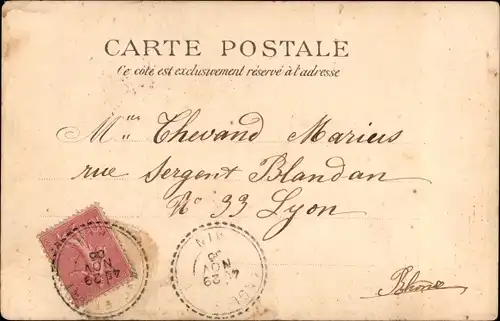 CARTE POSTALE
Ce côté est exclusivement réservé à l'adresse
Thevand Marius
rue Sergent Blandan
N° 33 Lyon
Rhône
29
NOV
29
NOV
AIN